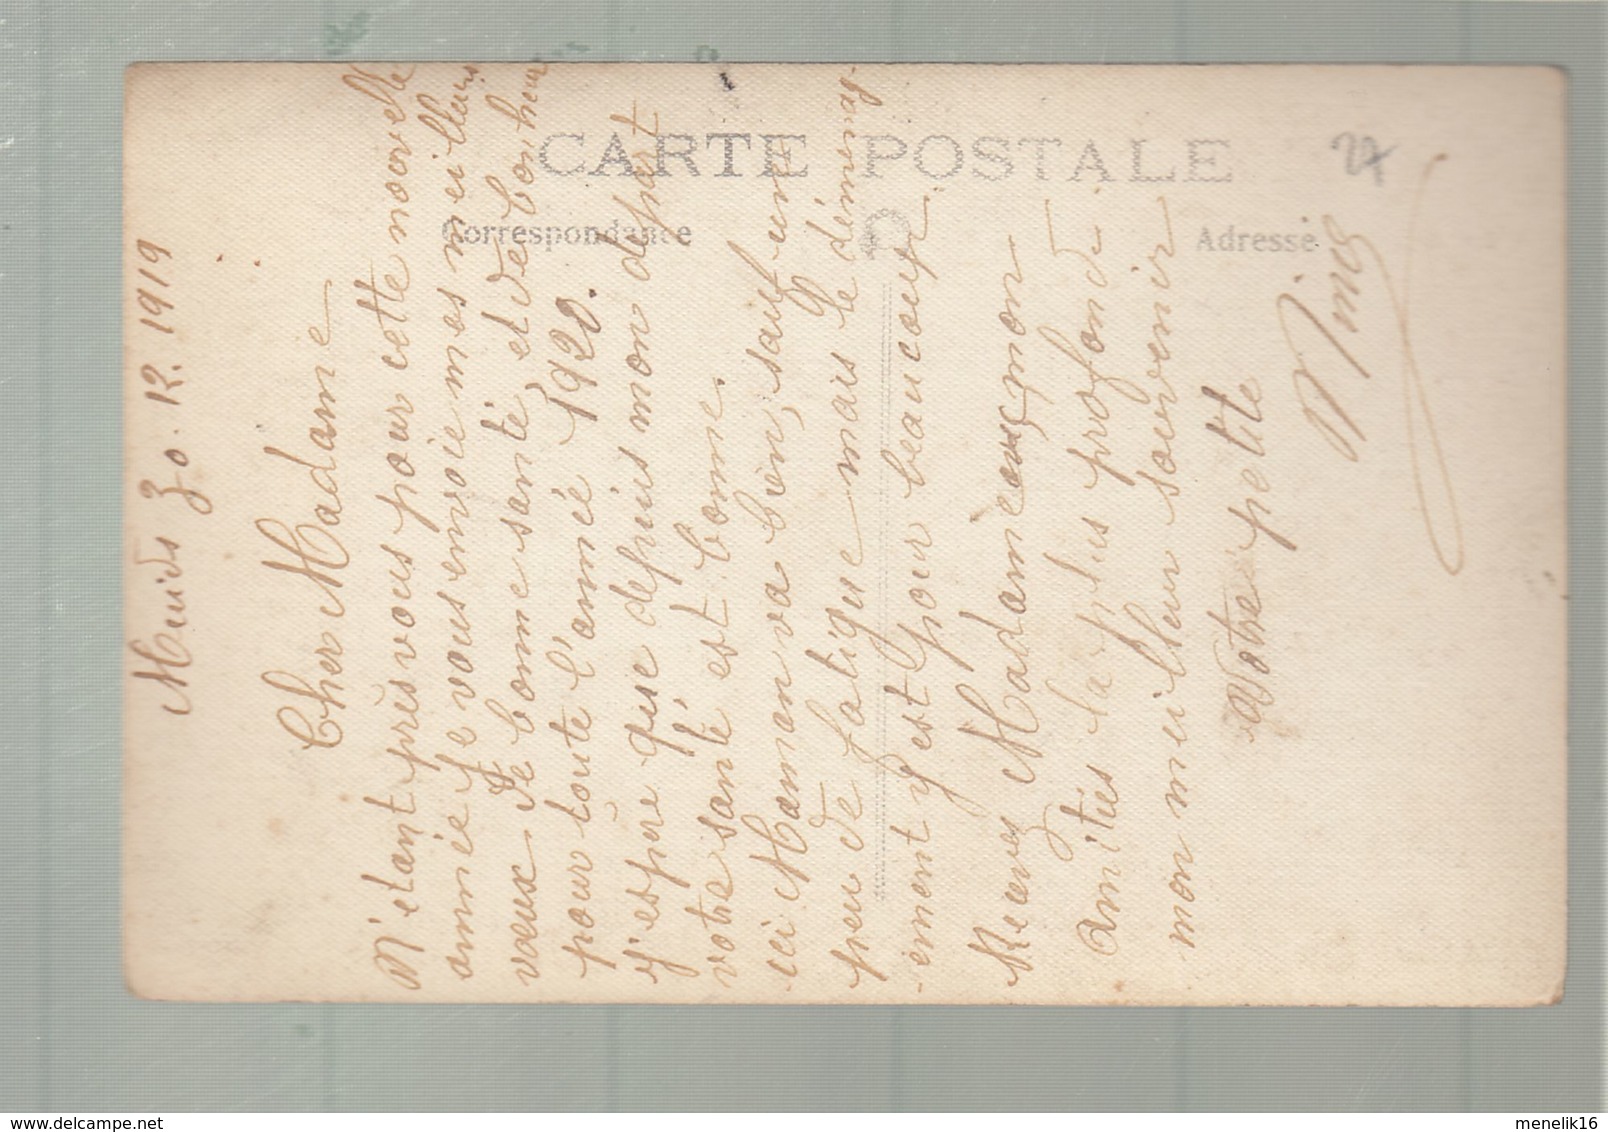 CARTE POSTALE
Correspondance
Adresse
27
Muids 30.12.1919
Cher Madame
N'étant près vous pour cette nouvelle
année je vous envoie mes meilleurs
vœux de bonne santé, et de bonheur
pour toute l'année 1920.
j'espère que depuis mon depart
votre santé est bonne.
ici Maman va bien, sauf un
peu de fatigue mais le démenag-
-ement y est pour beaucoup.
Recevez Madame mon
amitiés la plus profonde
mon meilleur souvenir
Votre petite
menelik16